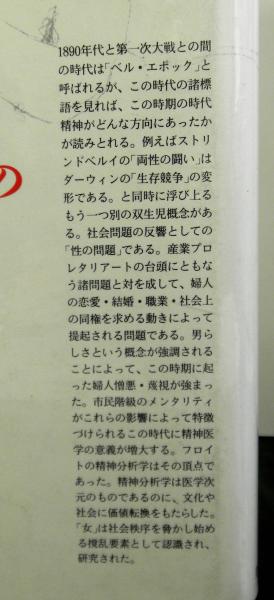 1890年代と第一次大戦との間
の時代は「ベル・エポック」と
呼ばれるが、この時代の諸標
語を見れば、この時期の時代
精神がどんな方向にあったか
が読みとれる。例えばストリ
ンドベルイの「両性の闘い」は
ダーウィンの「生存競争」の変
形である。と同時に浮び上る
もう一つ別の双生児概念があ
る。社会問題の反響としての
「性の問題」である。産業プロ
レタリアートの台頭にともな
う諸問題と対を成して、婦人
の恋愛・結婚・職業・社会上
の同権を求める動きによって
提起される問題である。男ら
しさという概念が強調される
ことによって、この時期に起
った婦人憎悪・蔑視が強まっ
た。市民階級のメンタリティ
がこれらの影響によって特徴
づけられるこの時代に精神医
学の意義が増大する。フロイ
トの精神分析学はその頂点で
あった。精神分析学は医学次
元のものであるのに、文化や
社会に価値転換をもたらした。
「女」は社会秩序を脅かし始め
る撹乱要素として認識され、
研究された。
の